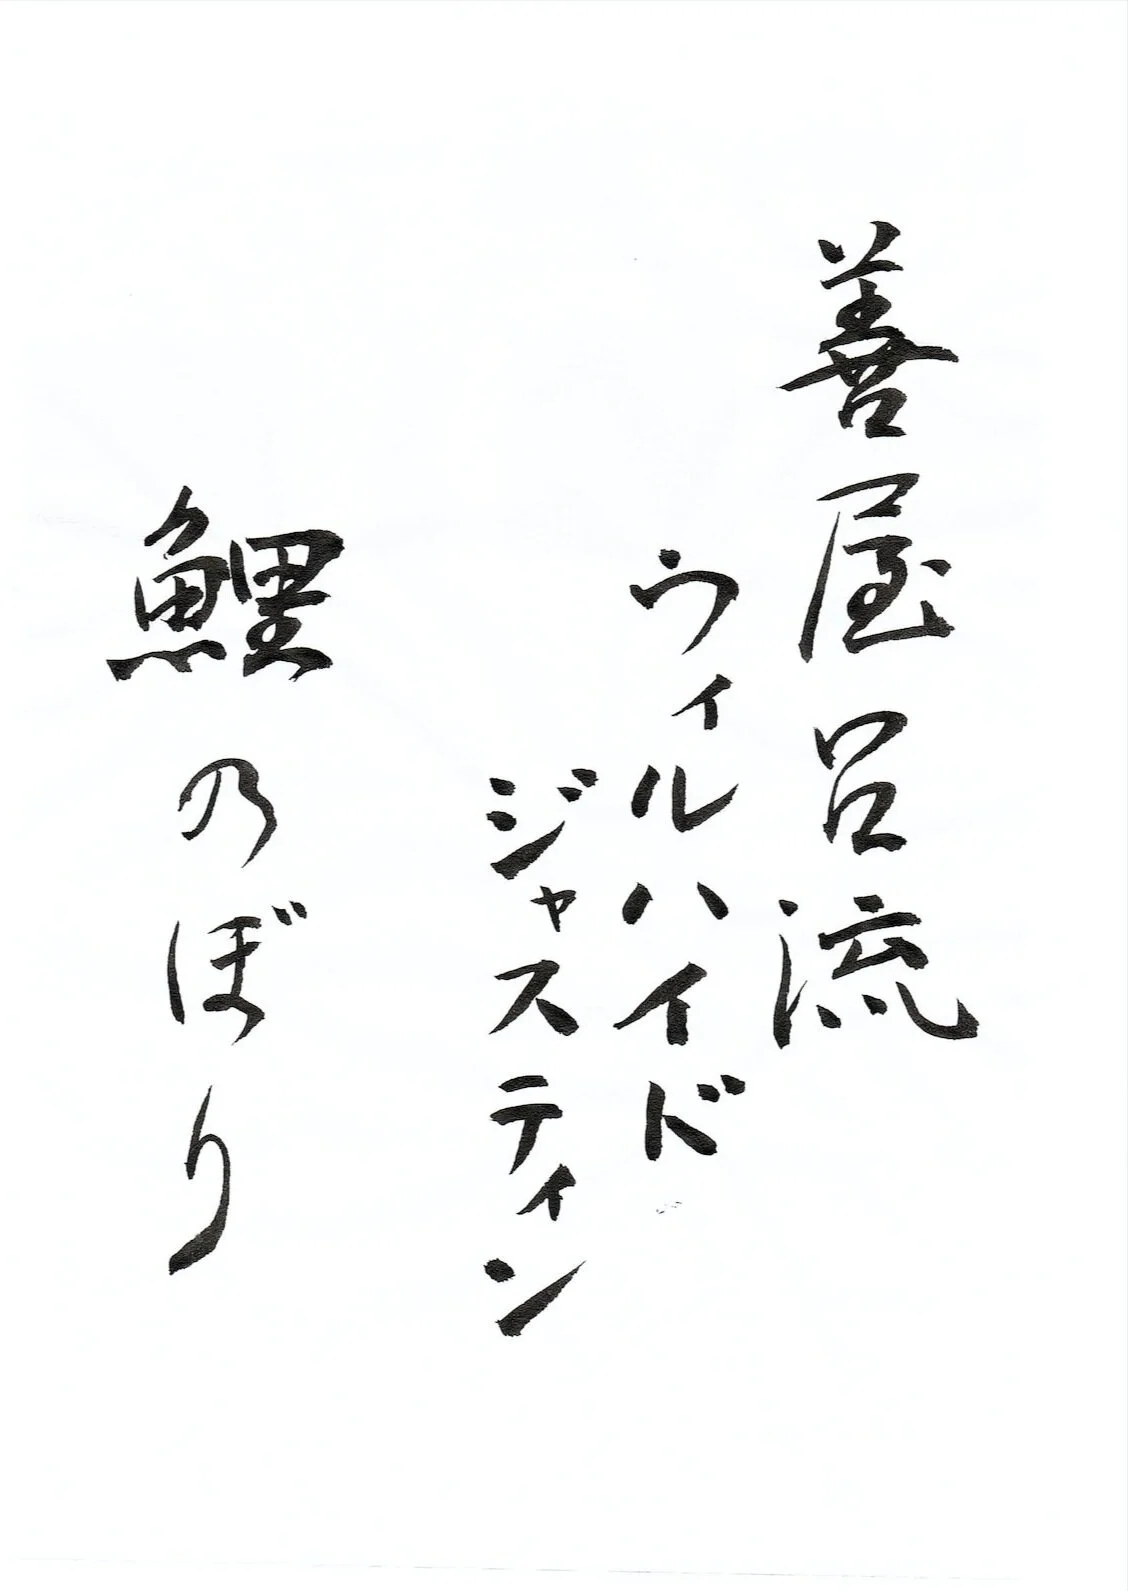 善屋呂流
ウィルハイド
ジャスティン
鯉乃ぼり